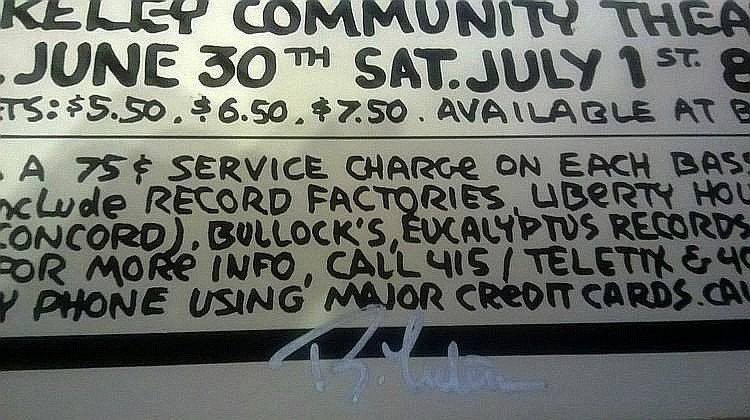 KELEY COMMUNITY THEA
. JUNE 30TH SAT. JULY 1ST. 8
TS: $5.50, $6.50, $7.50. AVAILABLE AT B
. A 75¢ SERVICE CHARGe ON EACH BASS
ncLude RECORD FACTORIES, LIBeRTY HOU
CONCORD), BULLOCK'S, EUCALYPTUS RECORDS
FOR MORe INFO, CALL 415/TELETIX & 40
Y PHONE USING MAJOR CReDIT CARDS. CAL